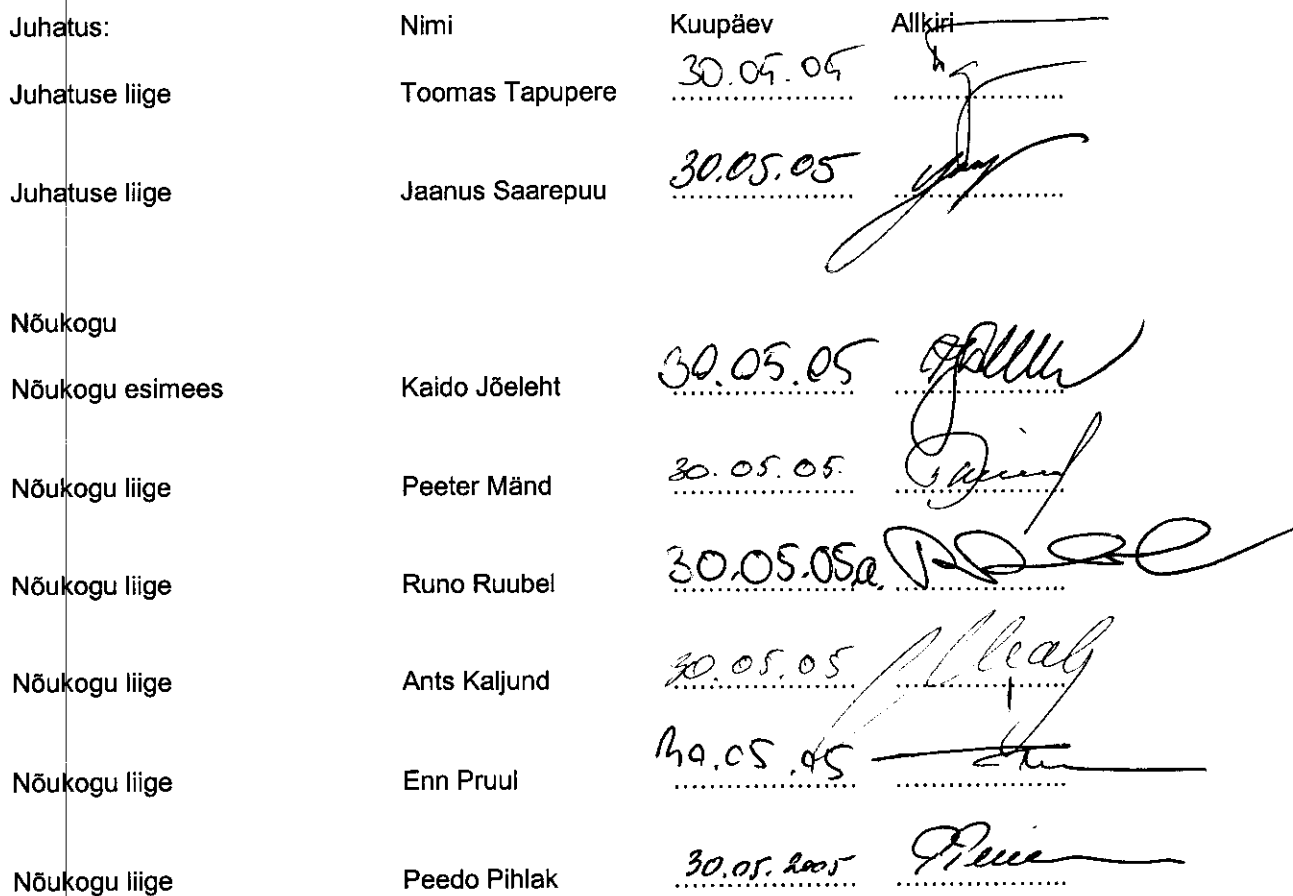 Juhatus: Nimi Kuupäev Allkiri
Juhatuse liige Toomas Tapupere 30.05.05
Juhatuse liige Jaanus Saarepuu 30.05.05
Nõukogu
Nõukogu esimees Kaido Jõeleht 30.05.05
Nõukogu liige Peeter Mänd 30.05.05.
Nõukogu liige Runo Ruubel 30.05.05a.
Nõukogu liige Ants Kaljund 30.05.05
Nõukogu liige Enn Pruul 30.05.05
Nõukogu liige Peedo Pihlak 30.05.2005